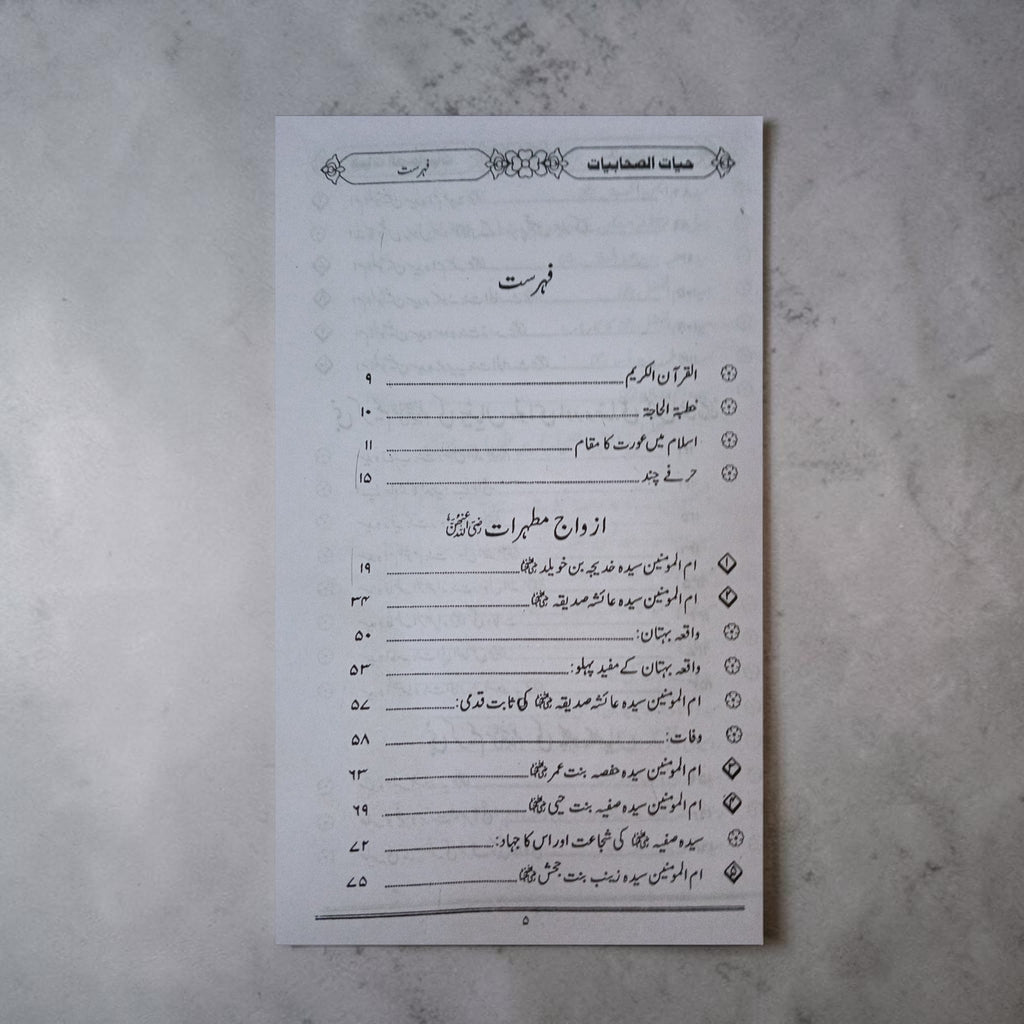 حیات الصحابیات
فہرست
فہرست
القرآن الکریم ۹
خطبۃ الحاجۃ ۱۰
اسلام میں عورت کا مقام ۱۱
حرفے چند ۱۵
ازواج مطہرات رضی اللہ عنھن
۱ ام المومنین سیدہ خدیجہ بن خویلد رضی اللہ عنہا ۱۹
۲ ام المومنین سیدہ عائشہ صدیقہ رضی اللہ عنہا ۳۴
واقعہ بہتان: ۵۰
واقعہ بہتان کے مفید پہلو: ۵۳
ام المومنین سیدہ عائشہ صدیقہ رضی اللہ عنہا کی ثابت قدمی: ۵۷
وفات: ۵۸
۳ ام المومنین سیدہ حفصہ بنت عمر رضی اللہ عنہا ۶۳
۴ ام المومنین سیدہ صفیہ بنت حیی رضی اللہ عنہا ۶۹
سیدہ صفیہ رضی اللہ عنہا کی شجاعت اور اس کا جہاد: ۷۲
۵ ام المومنین سیدہ زینب بنت جحش رضی اللہ عنہا ۷۵
۵